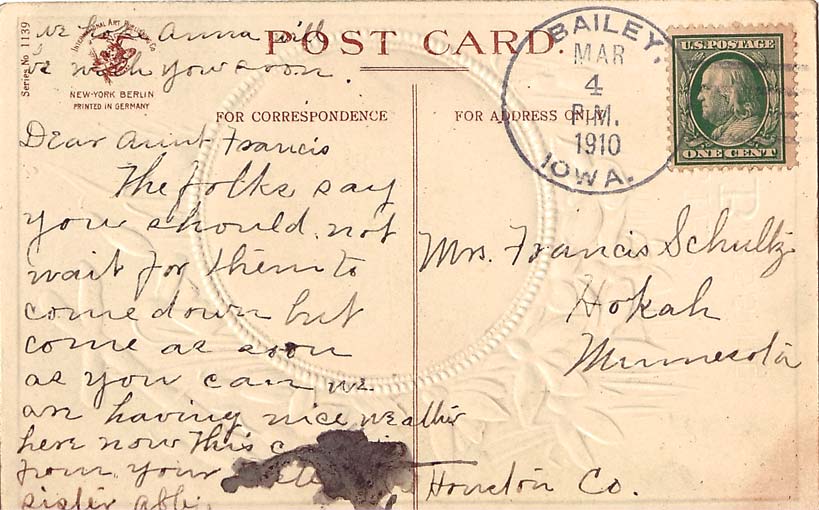 we hope Anna will
be with you soon.
Series No 1139
INTERNATIONAL ART PUBLISHING CO
NEW-YORK BERLIN
PRINTED IN GERMANY
POST CARD.
FOR CORRESPONDENCE
FOR ADDRESS ONLY
BAILEY,
MAR
4
P.M.
1910
IOWA.
U.S. POSTAGE
ONE CENT
Dear Aunt Francis
The folks say
you should not
wait for them to
come down but
come as soon
as you can we
are having nice weather
here now this
from your
sister Abby
Mrs. Francis Schultz
Hokah
Minnesota
Houston Co.